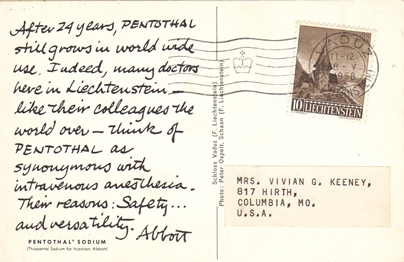 After 24 years, PENTOTHAL
still grows in world wide
use. Indeed, many doctors
here in Liechtenstein —
like their colleagues the
world over — think of
PENTOTHAL as
synonymous with
intravenous anesthesia.
Their reasons: Safety...
and versatility. Abbott
PENTOTHAL® SODIUM
(Thiopental Sodium for Injection, Abbott)
Schloss Vaduz (F. Liechtenstein)
Photo: Peter Ospelt, Schaan (F. Liechtenstein)
VADUZ
1958
10 LIECHTENSTEIN
MRS. VIVIAN G. KEENEY,
817 HIRTH,
COLUMBIA, MO.
U.S.A.